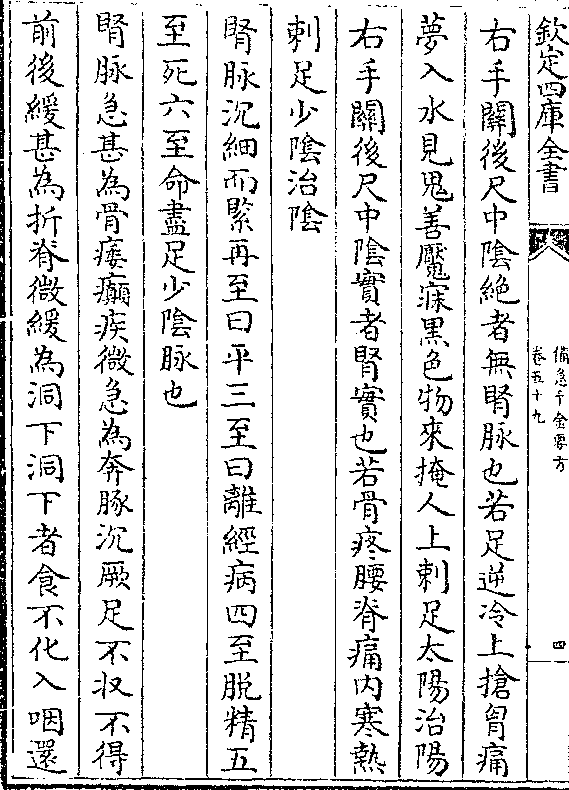 欽定四庫全書
備急千金要方
卷五十九
四
右手關後尺中陰絶者無腎脉也若足逆冷上搶胷痛
夢入水見鬼善魘寐黒色物來掩人上刺足太陽治陽
右手關後尺中陰實者腎實也若骨疼腰脊痛内寒熱
刺足少陰治陰
腎脉沉細而緊再至曰平三至曰離經病四至脱精五
至死六至命盡足少陰脉也
腎脉急甚為骨痿癲疾微急為奔豚沉厥足不収不得
前後緩甚為折脊微緩為洞下洞下者食不化入咽還